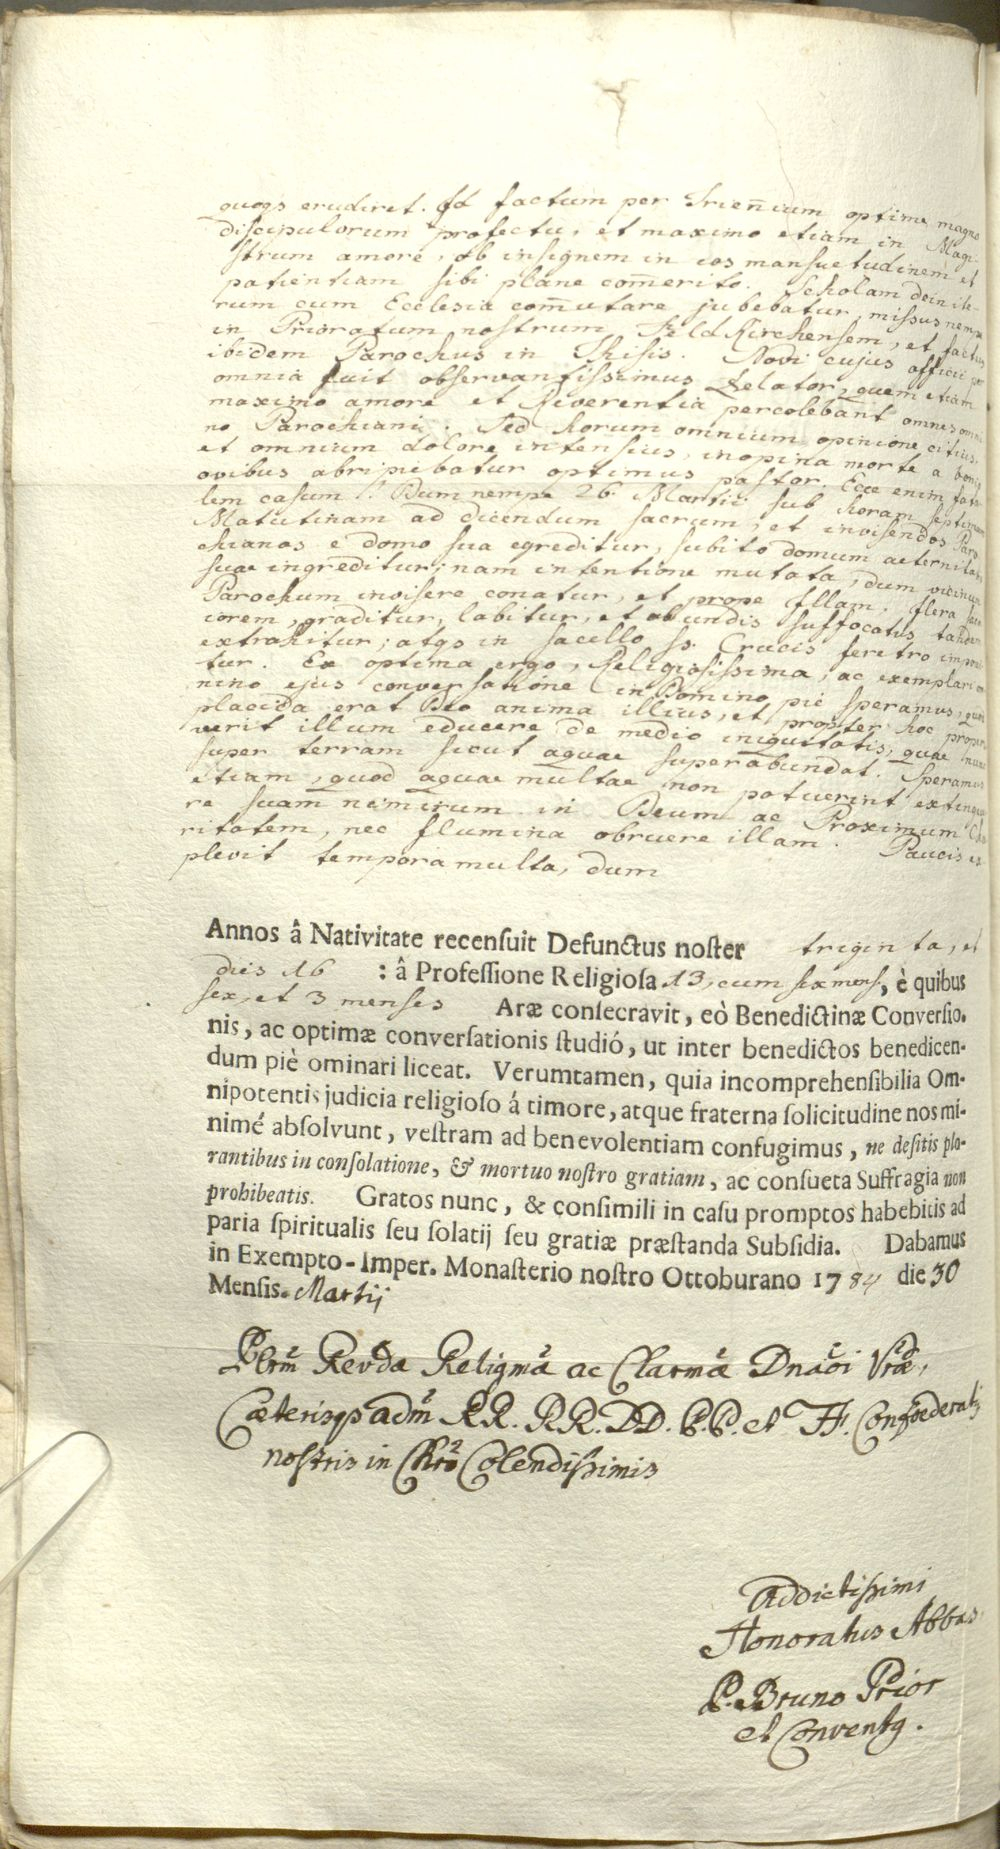 quoqs erudiret. Id factum per Trieñium optime, magno
discipulorum profectu, et maximo etiam in Magi-
strum amore, ob insignem in eos mansuetudinem et
patientiam sibi plane com̄erito. Scholam dein ite-
rum cum Ecclesia com̄utare jubebatur, missus nempe
in Prioratum nostrum Feldkirchensem, et factus
ibidem Parochus in Thisis. Novi cujus officii per
omnia fuit observantissimus Zelator, quem etiam
maximo amore et Reverentia percolebant omnes omni
no Parochiani. Sed horum omnium opinione citius,
et omnium dolore intensius, inopina morte a bonis
ovibus abripiebatur optimus pastor. Ecce enim fata-
lem casum!! Dum nempe 26. Martii sub horam septimam
Matutinam ad dicendum sacrum, et invisendos Paro
chianos e domo sua egreditur, subito domum aeternitatis
suae ingreditur; nam intentione mutata, dum vicinum
Parochum invisere conatur, et prope Illam,
iorem, graditur, labitur, et ab undis suffocatus tandem
extrahitur; atqs in sacello ss. Crucis feretro imponi
tur. Ex optima ergo, Religiosissima, ac exemplari om
nino ejus conversatione in Domino piè speramus, quod
placida erat Deo anima illius, et propter hoc prope
verit illum educere de medio iniquitatis, quae nunc
super terram sicut aquae superabundat. Speramus
etiam, quod aquae multae non potuerint extingue
re suam nimirum in Deum ac Proximum Cha
ritatem, nec flumina obruere illam. Paucis ex
plevit tempora multa, dum
Annos â Nativitate recensuit Defunctus noster triginta, et
dies 16 : â Professione Religiosa 13, cum sex mens., è quibus
sex, et 3 menses Aræ consecravit, eò Benedictinæ Conversio-
nis, ac optimæ conversationis studió, ut inter benedictos benedicen-
dum piè ominari liceat. Verumtamen, quia incomprehensibilia Om-
nipotentis judicia religioso á timore, atque fraterna solicitudine nos mi-
nimé absolvunt, vestram ad benevolentiam confugimus, ne desitis plo-
rantibus in consolatione, & mortuo nostro gratiam, ac consueta Suffragia non
prohibeatis. Gratos nunc, & consimili in casu promptos habebitis ad
paria spiritualis seu solatij seu gratiæ præstanda Subsidia. Dabamus
in Exempto-Imper. Monasterio nostro Ottoburano 1784 die 30
Mensis. Martij
Plrm̄ Revdæ Religmæ ac Clarmæ Dnaõi Vræ,
Cæterisqs adm̄ RR. RR. DD. P.P. et FF. Confoederatis
nostris in Chro Colendissimis
Addictissimi
Honoratus Abbas
P. Bruno Prior
et Conventq.